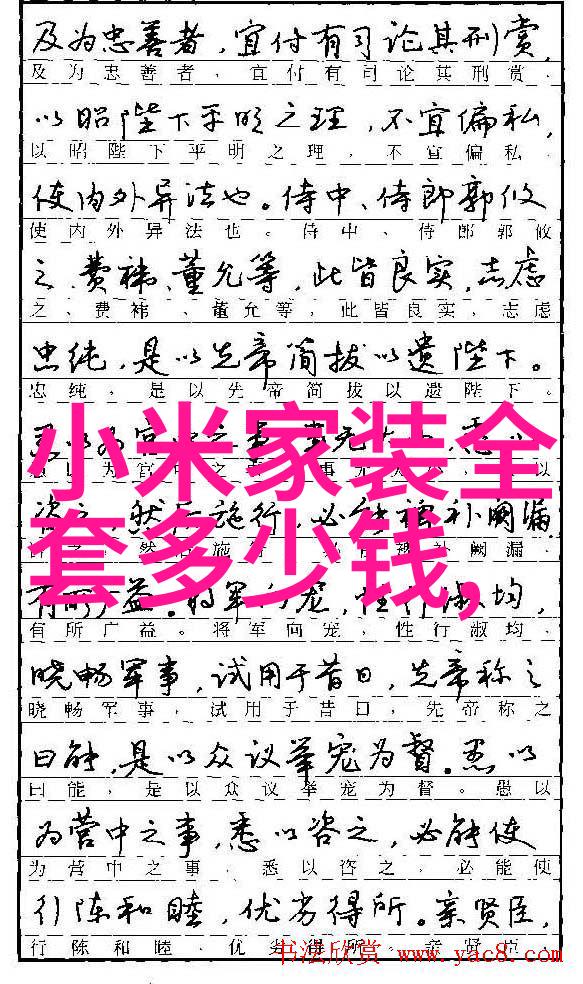 及为忠善者,宜付有司论其刑赏,
及为忠善者,宜付有司论其刑赏.
以昭陛下平明之理,不宜偏私,
以昭陛下平明之理,不宜偏私.
使内外异法也。侍中、侍郎郭攸
使内外异法也。侍中、侍郎郭攸
之、费袆、董允等,此皆良实,志虑
之、费袆、董允等,此皆良实,志虑
忠纯,是以先帝简拔以遗陛下。
忠纯,是以先帝简拔以遗陛下。
小米家装全
以为宫中之事
套多少钱,
然后施行,必能裨补阙漏,
然后施行 裨补阙漏.
有所广益。将军向宠,性行淑均,
有所广益。将军向宠,性行淑均.
晓畅军事,试用于昔日,先帝称之
晓畅军事,试用于昔日,先帝称之
曰能,是以众议举宠为督。愚以
曰能,是以众议举宠为督。愚以
为营中之事,悉以咨之,必能使
为营中之事.悉以咨之,必能使
行阵和睦,优劣得所。亲贤臣,
行阵和睦.优劣得所。亲贤臣.
书法欣赏 www.yac8.com